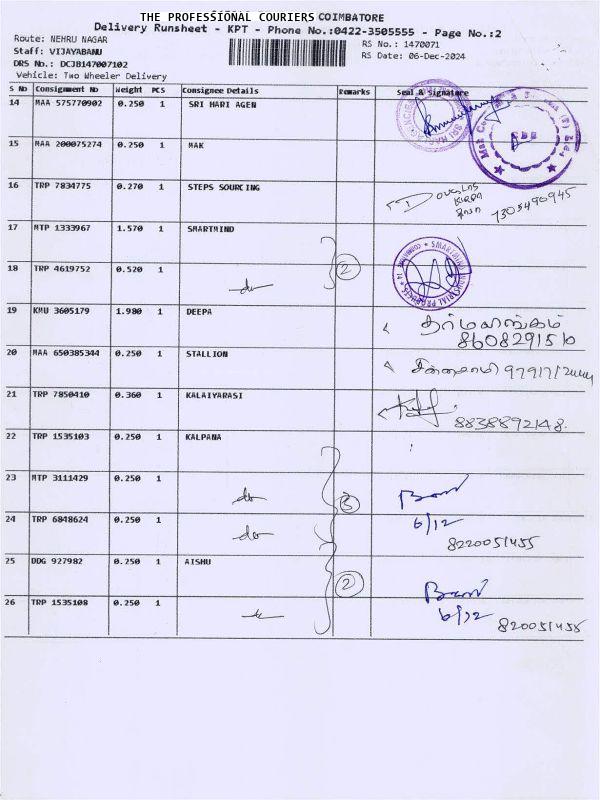 THE PROFESSIONAL COURIERS COIMBATORE
Delivery Runsheet - KPT - Phone No.:0422-3505555 - Page No.:2
Route: NEHRU NAGAR
Staff: VIJAYABANU
DRS No.: DCJB147007102
Vehicle: Two Wheeler Delivery
RS No.: 1470071
RS Date: 06-Dec-2024
S No Consignment No Weight PCS Consignee Details Remarks Seal & Signature
14 MAA 575770902 0.250 1 SRI HARI AGEN
15 MAA 200075274 0.250 1 MAK
16 TRP 7834775 0.270 1 STEPS SOURCING
7305490945
17 MTP 1333967 1.570 1 SMARTMIND
18 TRP 4619752 0.520 1 do 2
19 KMU 3605179 1.980 1 DEEPA
தர்மலிங்கம்
8608291510
20 MAA 650385344 0.250 1 STALLION
21 TRP 7850410 0.360 1 KALAIYARASI
8838892148
22 TRP 1535103 0.250 1 KALPANA
23 MTP 3111429 0.250 1 do 3
24 TRP 6848624 0.250 1 do
6/12
8220051455
25 DDG 927982 0.250 1 AISHU 2
26 TRP 1535108 0.250 1 do
6/12
820051455